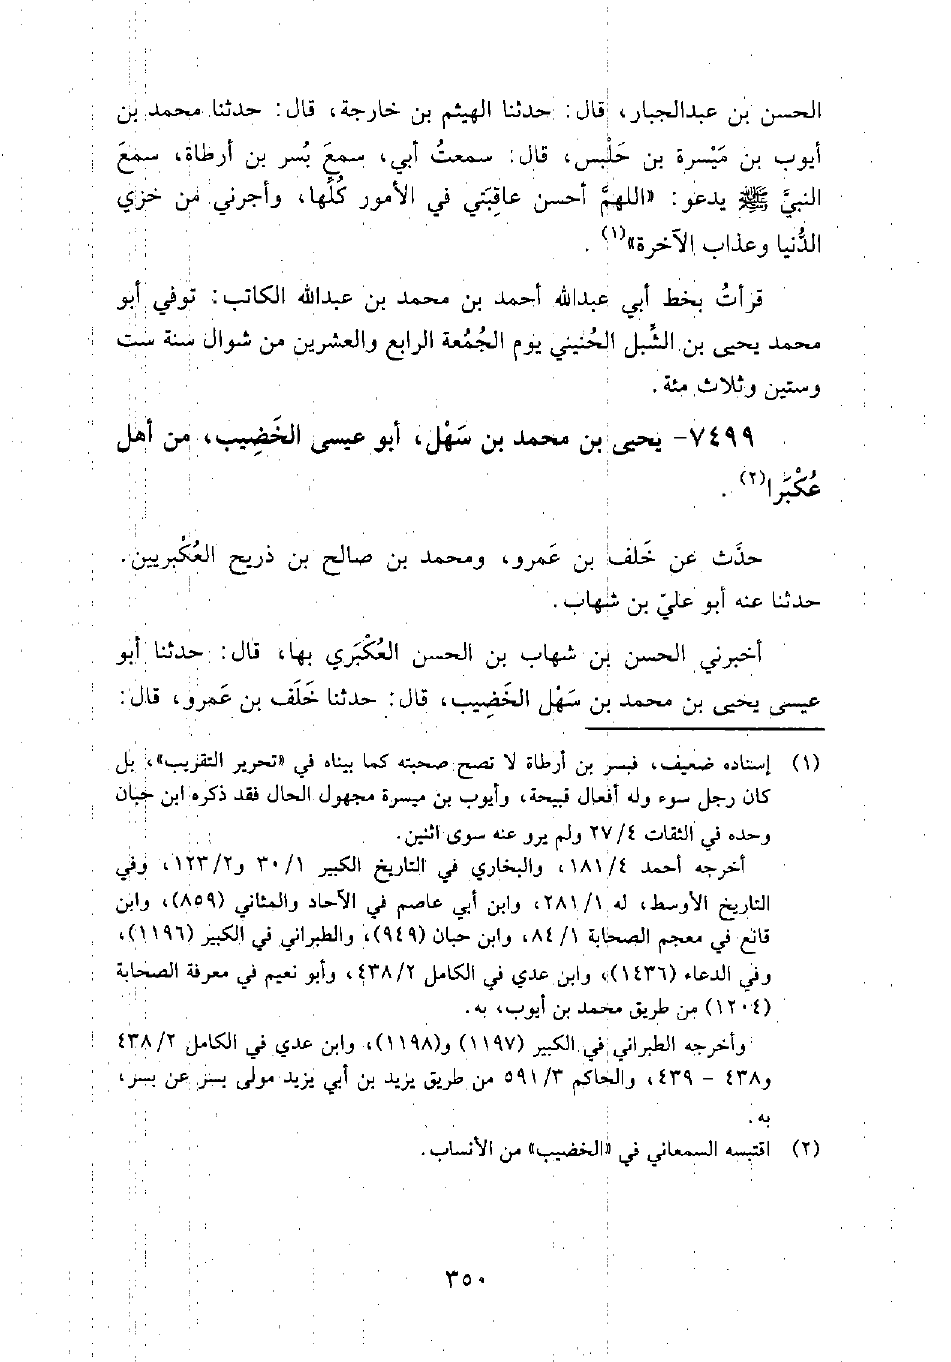 الحسن بن عبدالجبار، قال: حدثنا الهيثم بن خارجة، قال: حدثنا محمد بن
أيوب بن مَيْسرة بن حَلْبس، قال: سمعتُ أبي، سمعَ بُسر بن أرطاة، سمعَ
النبيَّ ﷺ يدعو: «اللهمَّ أحسن عاقِبَتي في الأمور كُلِّها، وأجرني من خزي
الدُّنيا وعذاب الآخرة»(١).
قرأتُ بخط أبي عبدالله أحمد بن محمد بن عبدالله الكاتب: توفي أبو
محمد يحيى بن الشِّبل الحُنيني يوم الجُمُعة الرابع والعشرين من شوال سنة ست
وستين وثلاث مئة.
٧٤٩٩- يحيى بن محمد بن سَهْل، أبو عيسى الخَضِيب، من أهل
عُكْبَرا(٢).
حدَّث عن خَلف بن عَمرو، ومحمد بن صالح بن ذريح العُكْبريين.
حدثنا عنه أبو عليّ بن شهاب.
أخبرني الحسن بن شهاب بن الحسن العُكْبَري بها، قال: حدثنا أبو
عيسى يحيى بن محمد بن سَهْل الخَضِيب، قال: حدثنا خَلَف بن عَمرو، قال:
(١) إسناده ضعيف، فبسر بن أرطاة لا تصح صحبته كما بيناه في «تحرير التقريب»، بل
كان رجل سوء وله أفعال قبيحة، وأيوب بن ميسرة مجهول الحال فقد ذكره ابن حبان
وحده في الثقات ٤/ ٢٧ ولم يرو عنه سوى اثنين.
أخرجه أحمد ٤/ ١٨١، والبخاري في التاريخ الكبير ١/ ٣٠ و٢/ ١٢٣، وفي
التاريخ الأوسط، له ١/ ٢٨١، وابن أبي عاصم في الآحاد والمثاني (٨٥٩)، وابن
قانع في معجم الصحابة ١/ ٨٤، وابن حبان (٩٤٩)، والطبراني في الكبير (١١٩٦)،
وفي الدعاء (١٤٣٦)، وابن عدي في الكامل ٢/ ٤٣٨، وأبو نعيم في معرفة الصحابة
(١٢٠٤) من طريق محمد بن أيوب، به.
وأخرجه الطبراني في الكبير (١١٩٧) و(١١٩٨)، وابن عدي في الكامل ٢/ ٤٣٨
و٤٣٨ - ٤٣٩، والحاكم ٣/ ٥٩١ من طريق يزيد بن أبي يزيد مولى بسر عن بسر،
به.
(٢) اقتبسه السمعاني في «الخضيب» من الأنساب.
٣٥٠